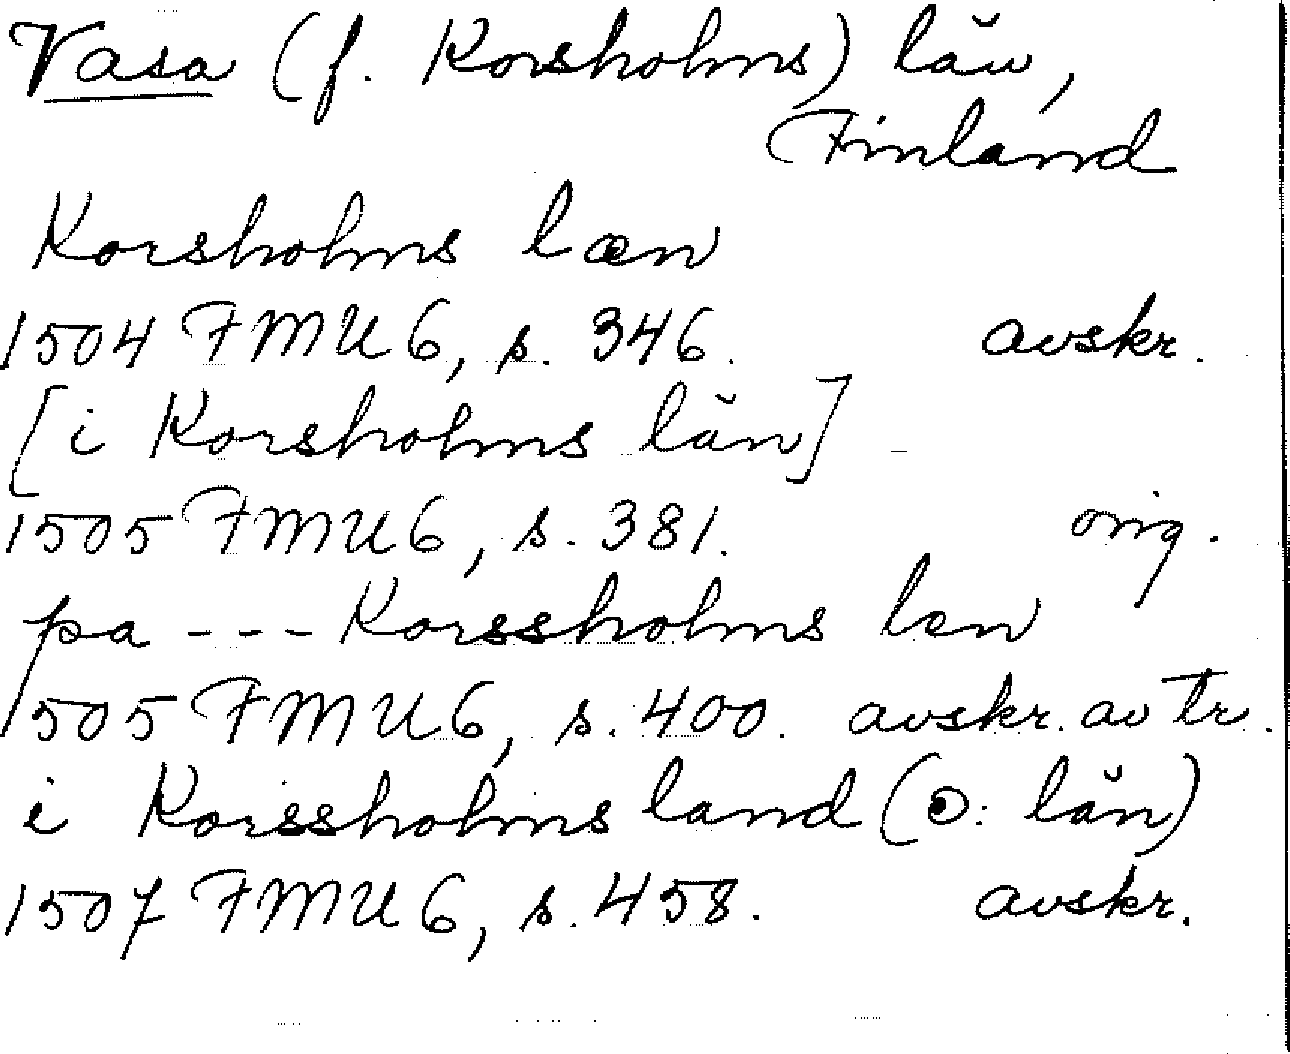 Vasa (f. Korsholms) län,
Finland
Korsholms læn
1504 FMU 6, s. 346. avskr.
[i Korsholms län]
1505 FMU 6, s. 381. orig.
pa --- Korssholms len
1505 FMU 6, s. 400. avskr. av tr.
i Korssholms land (ɔ: län)
1507 FMU 6, s. 458. avskr.